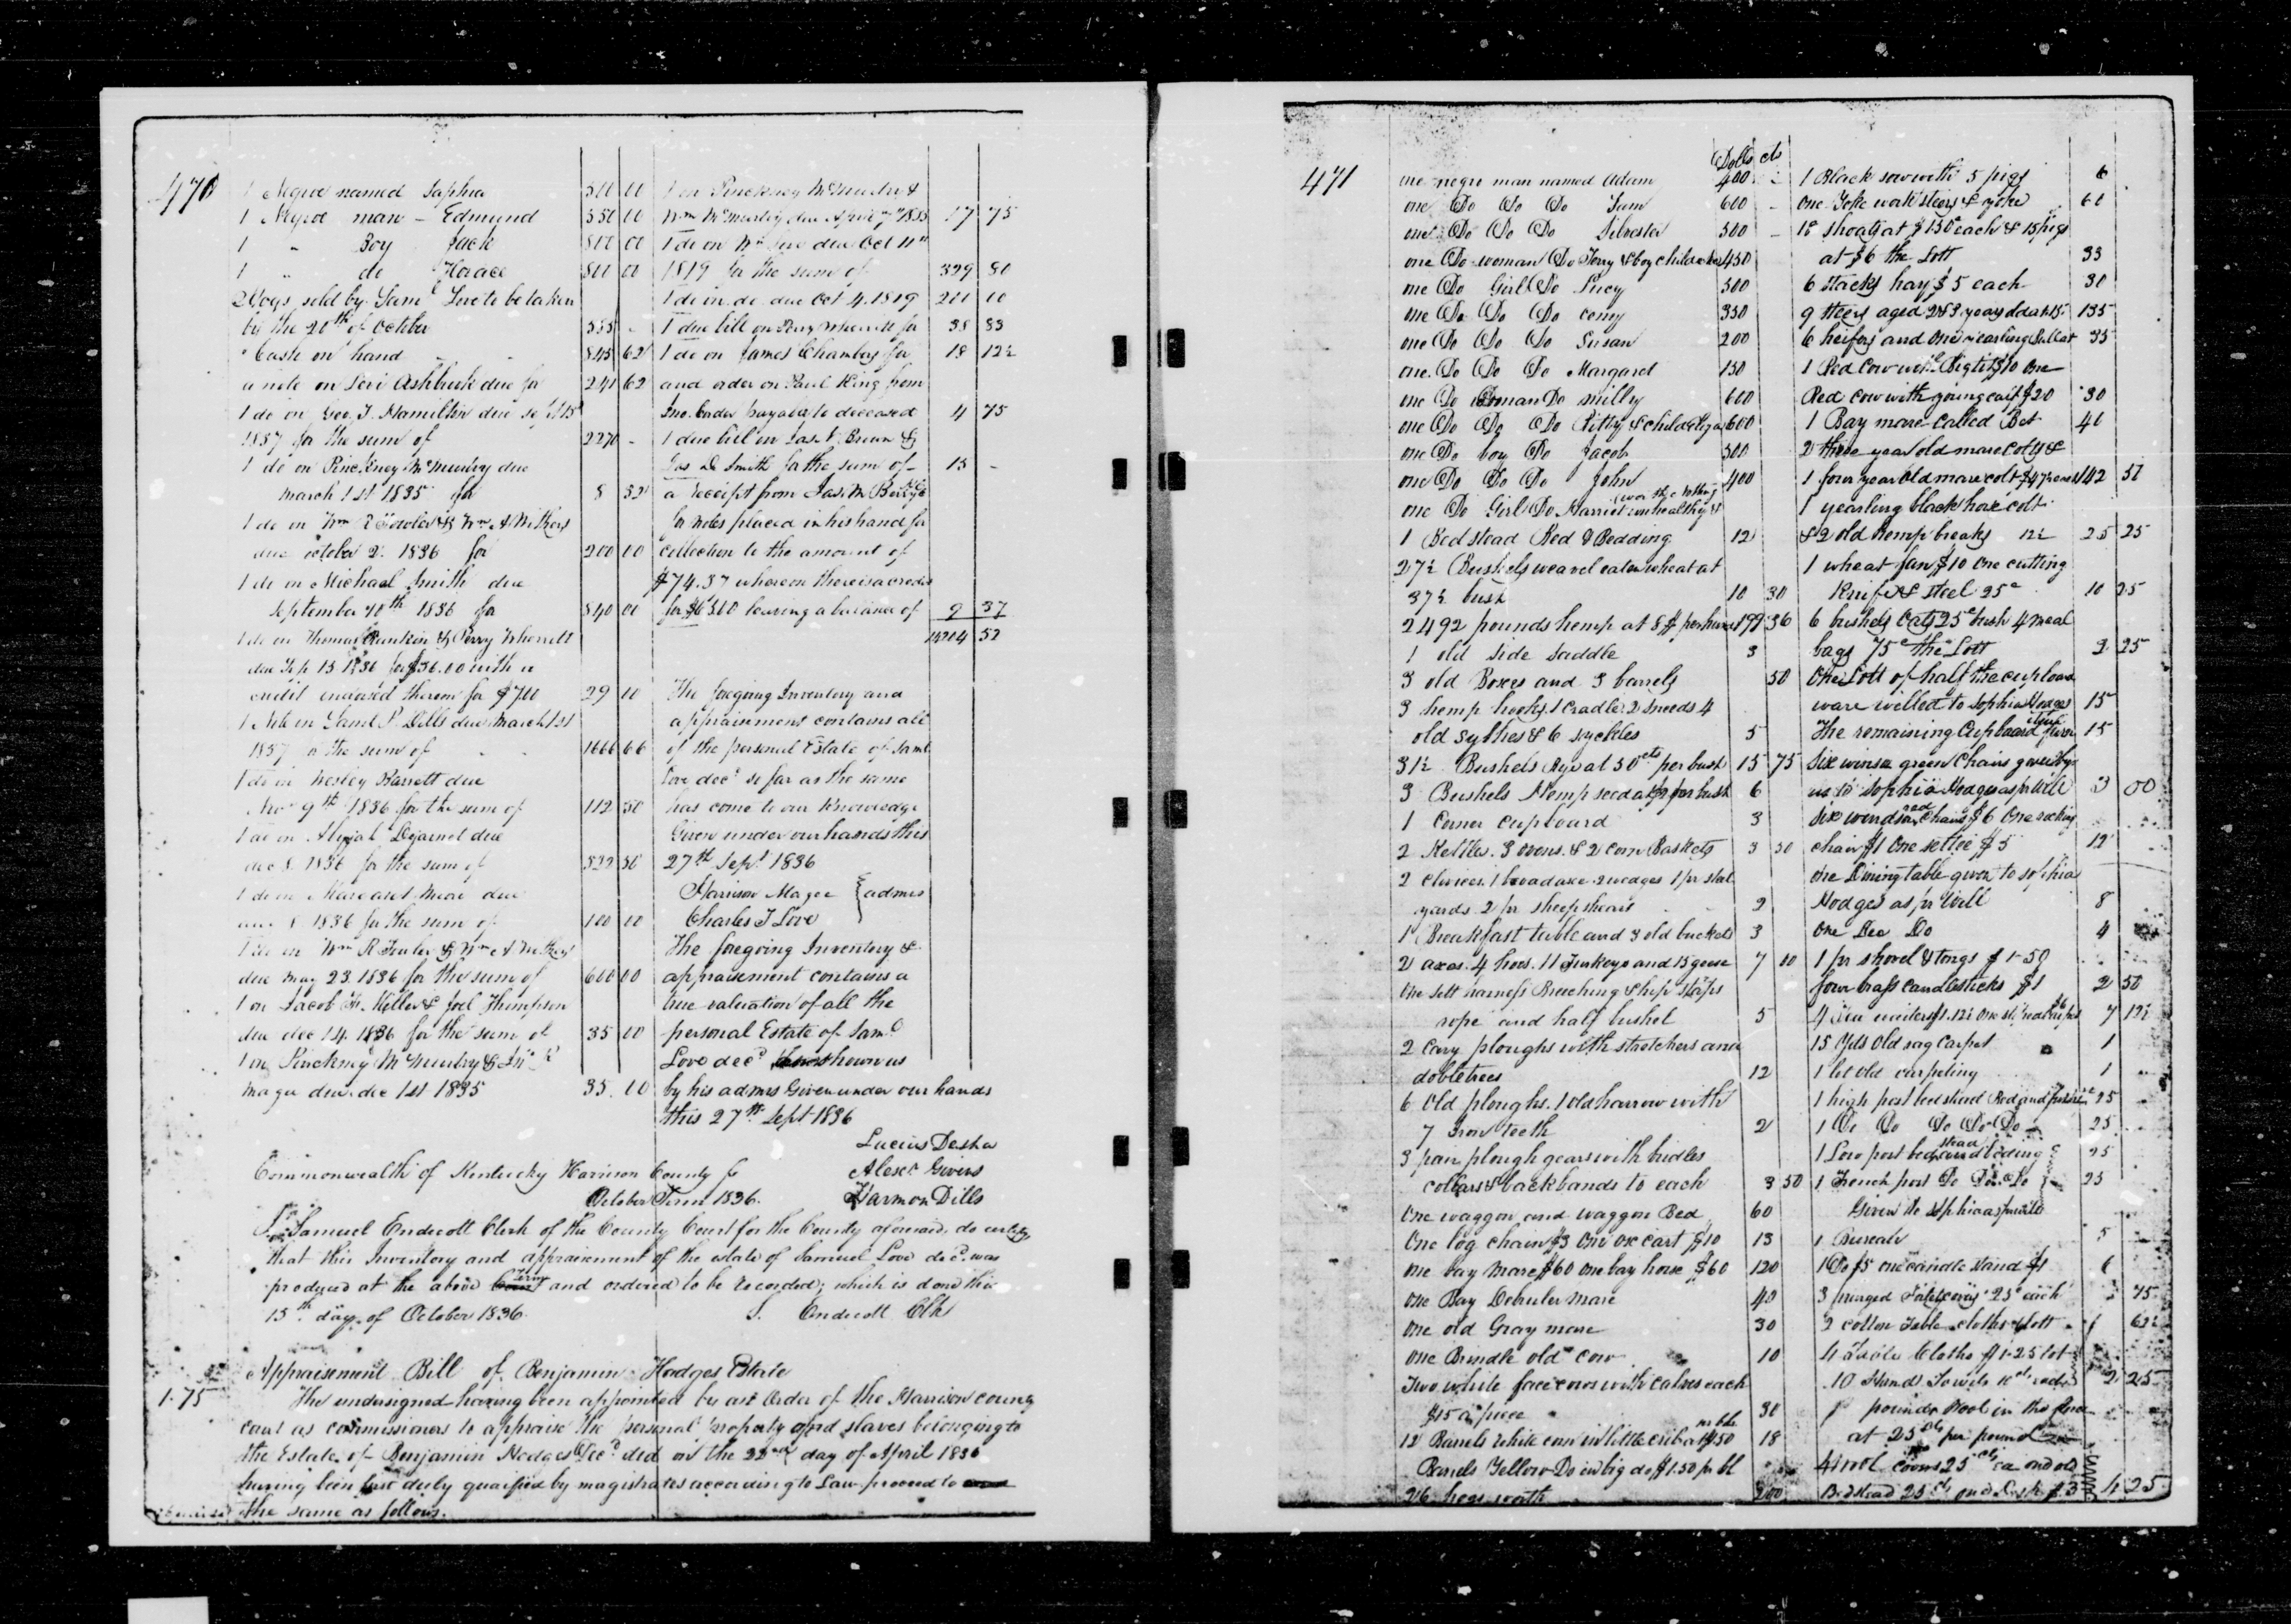 470
1 Negroe named Saphia 500 00
1 Negroe man - Edmund 550 00
1 " Boy Jack 800 00
1 " do Horace 800 00
Hogs sold by Saml Love to be taken
by the 20th of October 535 -
Cash on hand 845 62
a note on Levi Ashbrook due for 241 62
1 do on Geo. T. Hamilton due
1837 for the sum of 2270 -
1 do on Pinckney McMurtry due
march 1st 1835 for 8 32
1 do on Wm R Fowler & Wm A Withers
due october 2. 1836 for 200 00
1 do on Michael Smith due
September 10th 1836 for 540 00
1 do on Thomas Rankin & Perry Wherrett
due Sep 13 1836 for $36.00 with a
credit indorsed thereon for $7 00 29 00
1 Note on Saml P. Dills due March 1st
1837 for the sum of 1666 66
1 do on Wesley Barrett due
Nov 9th 1836 for the sum of 112 50
1 do on Abijah Dejarnet due
dec 8 1836 for the sum of 522 50
1 do on Margaret Moore due
1836 for the sum of 100 00
1 do on Wm R Fowler & Wm A Withers
due May 23 1836 for the sum of 600 00
1 on Jacob Miller & Joel Thompson
due dec 14 1836 for the sum of 35 00
1 on Pinckney McMurtry & Jno R
Magee due dec 1st 1835 35.00
1 on Pinckney McMurtry &
Wm McMurtry due April 7th 1835 17 75
1 do on Wm Love due Oct 11th
1819 for the sum of 329 80
1 do on do due Oct 4. 1819 201 00
1 due bill on Perry Wherrett for 38 83
1 do on James Chambers for 18 12½
and order on Paul King from
Jno. payable to deceased 4 75
1 due bill on Brown &
Jas D. Smith for the sum of 15 -
a receipt from Jas. M Berry
for notes placed in his hand for
collection to the amount of
$74.37 whereon there is a credit
for leaving a balance of 9 37
52
The foregoing Inventory and
appraisement contains all
of the personal Estate of Saml
Love decd so far as the same
has come to our Knowledge
Given under our hands this
27th Sept 1836
Harrison Magee } admrs
Charles T Love
The foregoing Inventory &
appraisement contains a
true valuation of all the
personal Estate of Saml
Love decd shown us
by his admrs Given under our hands
this 27th Sept 1836
Lucius Desha
Alexr Givens
Harmon Dills
Commonwealth of Kentucky Harrison County Sc
October Term 1836.
I Samuel Endicott Clerk of the County Court for the County aforesaid do certify
that this Inventory and appraisement of the estate of Samuel Love decd was
produced at the above term and ordered to be recorded; which is done this
15th day of October 1836. S. Endicott Clk
Appraisement Bill of Benjamin Hodges Estate
1.75
The undersigned having been appointed by an Order of the Harrison county
court as commissioners to appraise the personal property and slaves belonging to
the Estate of Benjamin Hodges Decd did on the 22nd day of April 1836
having been first duly qualified by magistrates according to Law proceed to
the same as follows.
471
Dolls cts
one negro man named Adam 400 -
one Do Do Do Sam 600 -
one Do Do Do Silvester 500 -
one Do woman Do & boy child 450
one Do Girl Do Lucy 500
one Do Do Do 350
one Do Do Do Susan 200
one Do Do Do Margaret 150
one Do woman Do Milly 600
one Do Do Do Kitty & child Eliza 600
one Do boy Do Jacob 500
one Do Do Do John 400
one Do Girl Do Harriet unhealthy & worth nothing
1 Bedstead Bed & Bedding 12
27½ Bushels weavel eaten wheat at
37½ bush 10 30
2492 pounds hemp at 8$ per hund 199 36
1 old side saddle 3
3 old Boxes and 3 barrels 50
3 hemp hooks 1 Cradle 2 sneeds 4
old sythes & 6 syckles 5
31½ Bushels Rye at 50 cts per bush 15 75
3 Bushels Hemp seed at $2 per bush 6
1 Corner cupboard 3
2 Kettles. 3 ovens. & 2 corn Baskets 3 50
2 clevices. 1 broad axe. 2 wedges 1 pr stal
yards 2 pr sheep shears 2
1 Breakfast table and 3 old buckets 3
2 axes. 4 hoes. 11 Turkeys and 13 geese 7 00
One sett harness Breeching & hip straps
rope and half bushel 5
2 Cary ploughs with stretchers and
dobletrees 12
6 old ploughs. 1 old harrow with
7 iron teeth 2
3 pair plough gears with bridles
collars & backbands to each 3 50
One waggon and waggon Bed 60
One log chain $3 one ox cart $10 13
one bay mare $60 one bay horse $60 120
one Bay mare 40
one old Gray mare 30
one Brindle old cow 10
Two white face cows with calves each
$15 a piece 30
12 Barrels white corn in little crib at $1.50 pr bbl 18
Barrels Yellow Do in big do $1.50 pr bl
26 hogs worth 200
1 Black sow with 5 pigs 6
One Yoke work steers & yoke 60
shoats at $1 50c each & 15 pigs
at $6 the Lott 33
6 Stacks hay $5 each 30
9 steers aged 2 & 3 years old at $15 135
6 heifers and one yearling Bull at 35
1 Red Cow with $10 One
Red cow with young calf $20 30
1 Bay mare called Bet 40
2 three year old mare colts &
1 four year old mare colt 142 50
1 yearling black horse colt
& 2 old hemp breaks 12½ 25 25
1 wheat fan $10 one cutting
Knife & steel 25c 10 25
6 bushels Oats 25c bush 4 meal
bags 75c the Lott 2 25
One Lott of half the cupboard
ware willed to Sophia Hodges 15
The remaining Cupboard furn 15
Six winsor green Chairs given by
us to Sophia Hodges as pr Will 3 00
Six windsor red chairs $6 One rocking
chair $1 One settee $5 12
one Dining table given to Sophia
Hodges as pr Will 8
One Do Do 4
1 pr shovel & tongs $1.50
four brass candlesticks $1 2 50
15 yds old rag carpet 1
1 lot old carpeting 1
1 high post bedstead Bed and furniture 25
1 Do Do Do Do Do 25
1 Low post bedstead and beding 25
1 French post Do Do & Do 25
Given to Sophia as pr will
1 Bureau 5
1 Do $5 one candle stand $1 6
3 25c each 75
2 cotton Table cloths Lott 1 62½
4 Table Cloths $1.25 lot
10 Hand Towels 10 cts each 2 25
pounds Wool in the
at 25 cts per pound
25 cts ea and old
Bedstead 25 cts and Desk $3 4 25